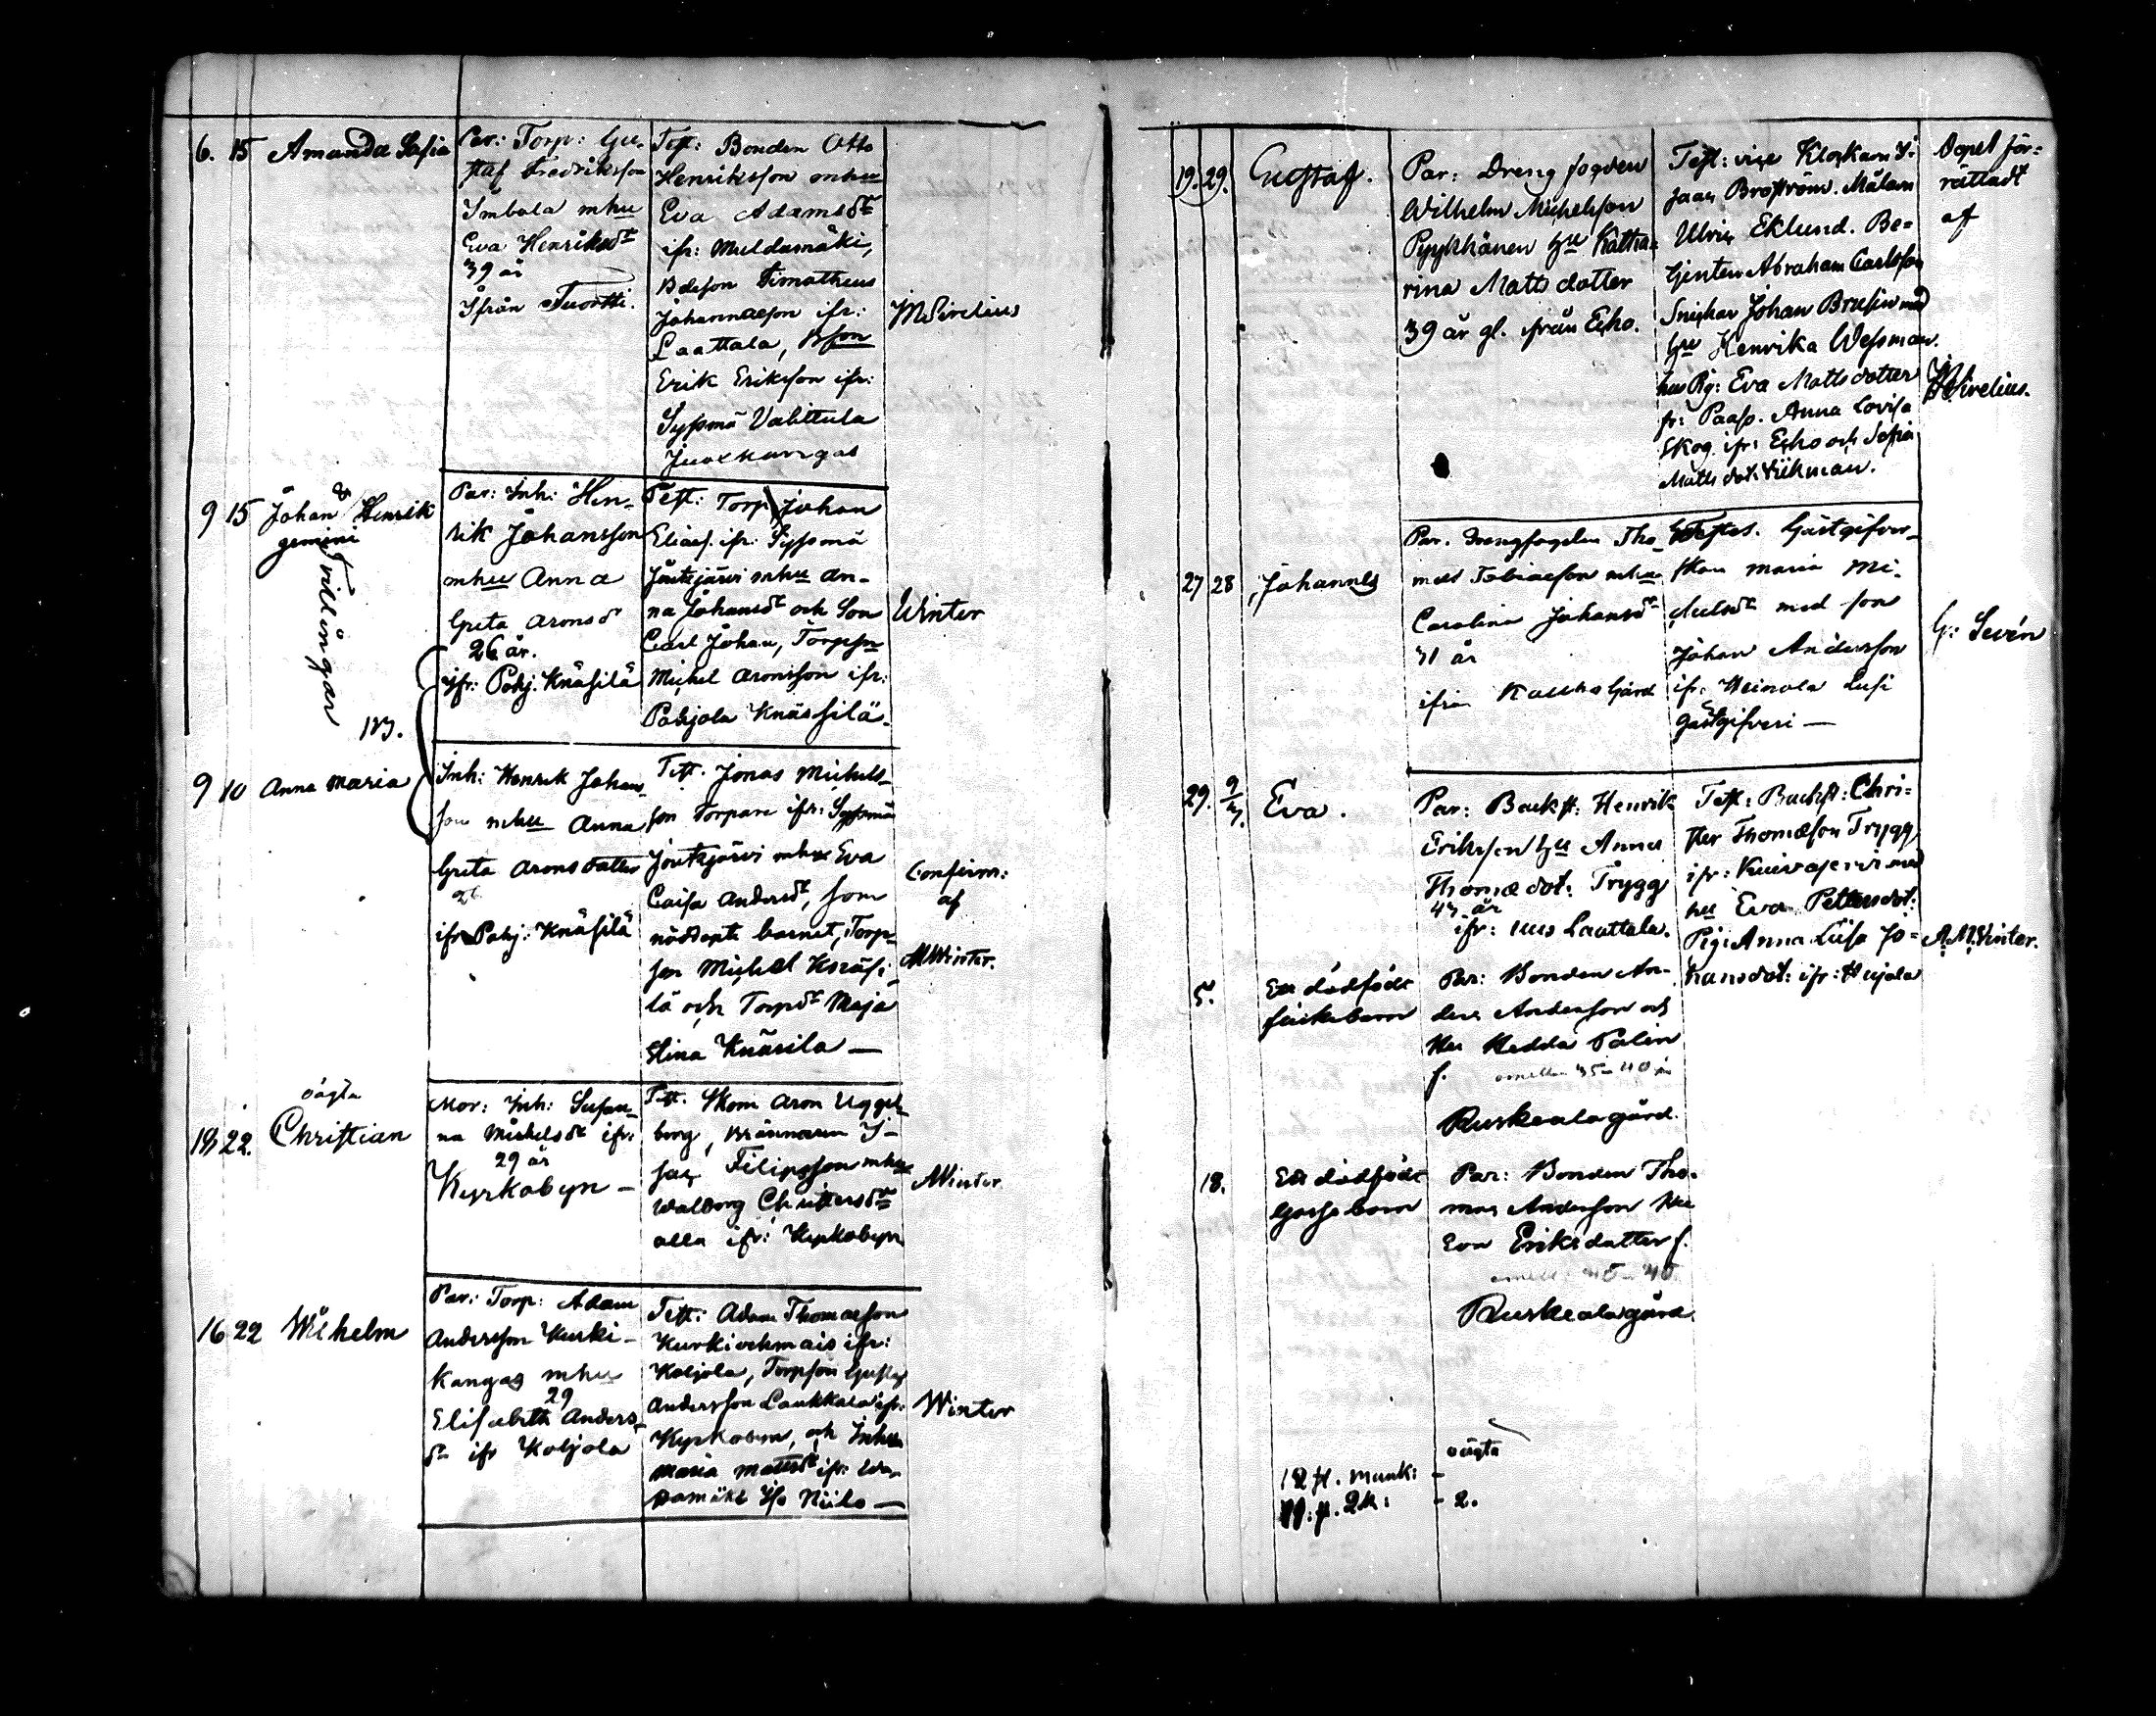 6. 15 Amanda Sofia
Par: Torp: Gu-
staf Fredriksson
Imbola mhu
Eva Henriksdr
39 år
Ifrån Tuortti.
Test: Bonden Otto
Henriksson mhu
Eva Adamsdr
ifr: Muldamäki,
Bdeson Timotheus
Johannesson ifr:
Laattala, Bson
Erik Eriksson ifr:
Syssmä Valittula
MSirelius
9 15 Johan & Henrik
gemini
Tvillingar
Par: Inh: Hen-
rik Johansson
mhu Anna
Greta Aronsdr
26 år.
ifr: Pohj: Knäsilä
Test: Torp Johan
Eliass. ifr: Syssmä
Joutsjärvi mhu An-
na Johansdr och Son
Carl Johan, Torpson
Michel Aronsson ifr:
Pohjola Knässilä.
Winter
9 10 Anna Maria
Inh: Henrik Johans-
son mhu Anna
Greta Aronsdotter
26
ifr Pohj: Knäsilä
Test. Jonas Michels-
son Torpare ifr: Syssmä
Joutsjärvi mhu Eva
Caisa Andersdr, som
nöddöpte barnet, Torp-
son Michel Knäsi-
lä och Torpdr Maja
Stina Knäsila —
Confirm:
af
AMWinter.
oägta
22. Christian
Mor: Inh: Susan-
na Michelsdr ifr:
29 år
Kyrkobyn —
Test. Skom Aron Uggel-
borg, Brännaren I-
sac Filipsson mhu
Walborg Christersdr
alla ifr: Kyrkobyn
AWinter
16 22 Wilhelm
Par: Torp: Adam
Andersson Kurki-
kangas mhu
29
Elisabeth Anders-
dr ifr Koljola
Test: Adam Thomasson
ifr:
Koljola, Torpson Gustaf
Andersson Laukkala ifr:
Kyrkobyn, och Inhu
Maria Mattsdr ifr:
Niilo —
Winter
19. 29. Gustaf.
Par: Drengfogden
Wilhelm Michelsson
Pyykkönen hu Katha-
rina Matts dotter
39 år gl. ifrån Echo.
Test: vice Klockaren I-
saac Broström. Målarn
Ulric Eklund. Be-
tjenten Abraham Carlsson
Snickar Johan Brusin med
hu Henrika Wessman.
Pig: Eva Mattsdotter
fr: Paaso. Anna Lovisa
Skog ifr: Echo och Sofia
Matts dot.
Dopet för-
rättadt
af
MSirelius.
27 28 Johannes
Par. Drengfogden Tho-
mas Tobiasson mhu
Carolina Johansdr
31 år
ifrån Gård
Testes. Gästgifver-
skan Maria Mi-
chelsdr med son
Johan Andersson
ifr: Heinola Lusi
gästgifveri —
G: Sevón
29. 9/4. Eva.
Par: Backst: Henrik
Eriksson hu Anna
Thomædot: Trygg
43 år
ifr: Laattala.
Test: Backst: Chri-
ster Thomæson Trygg
ifr: med
hu Eva Pettersdot:
Pig: Anna Lisa Jo-
hansdot: ifr: Hujala
A.M.Winter.
5. Ett dödfödt
flickebarn
Par: Bonden An-
ders Andersson och
Hu Hedda Palin
f. emellan 35–40 år
Ruskeala gård.
18. Ett dödfödt
Gossebarn
Par: Bonden Tho-
mas Andersson Hu
Eva Eriksdotter f.
Ruskeala gård.
oägta
12 st. mank: -
st. Qk: - 2.